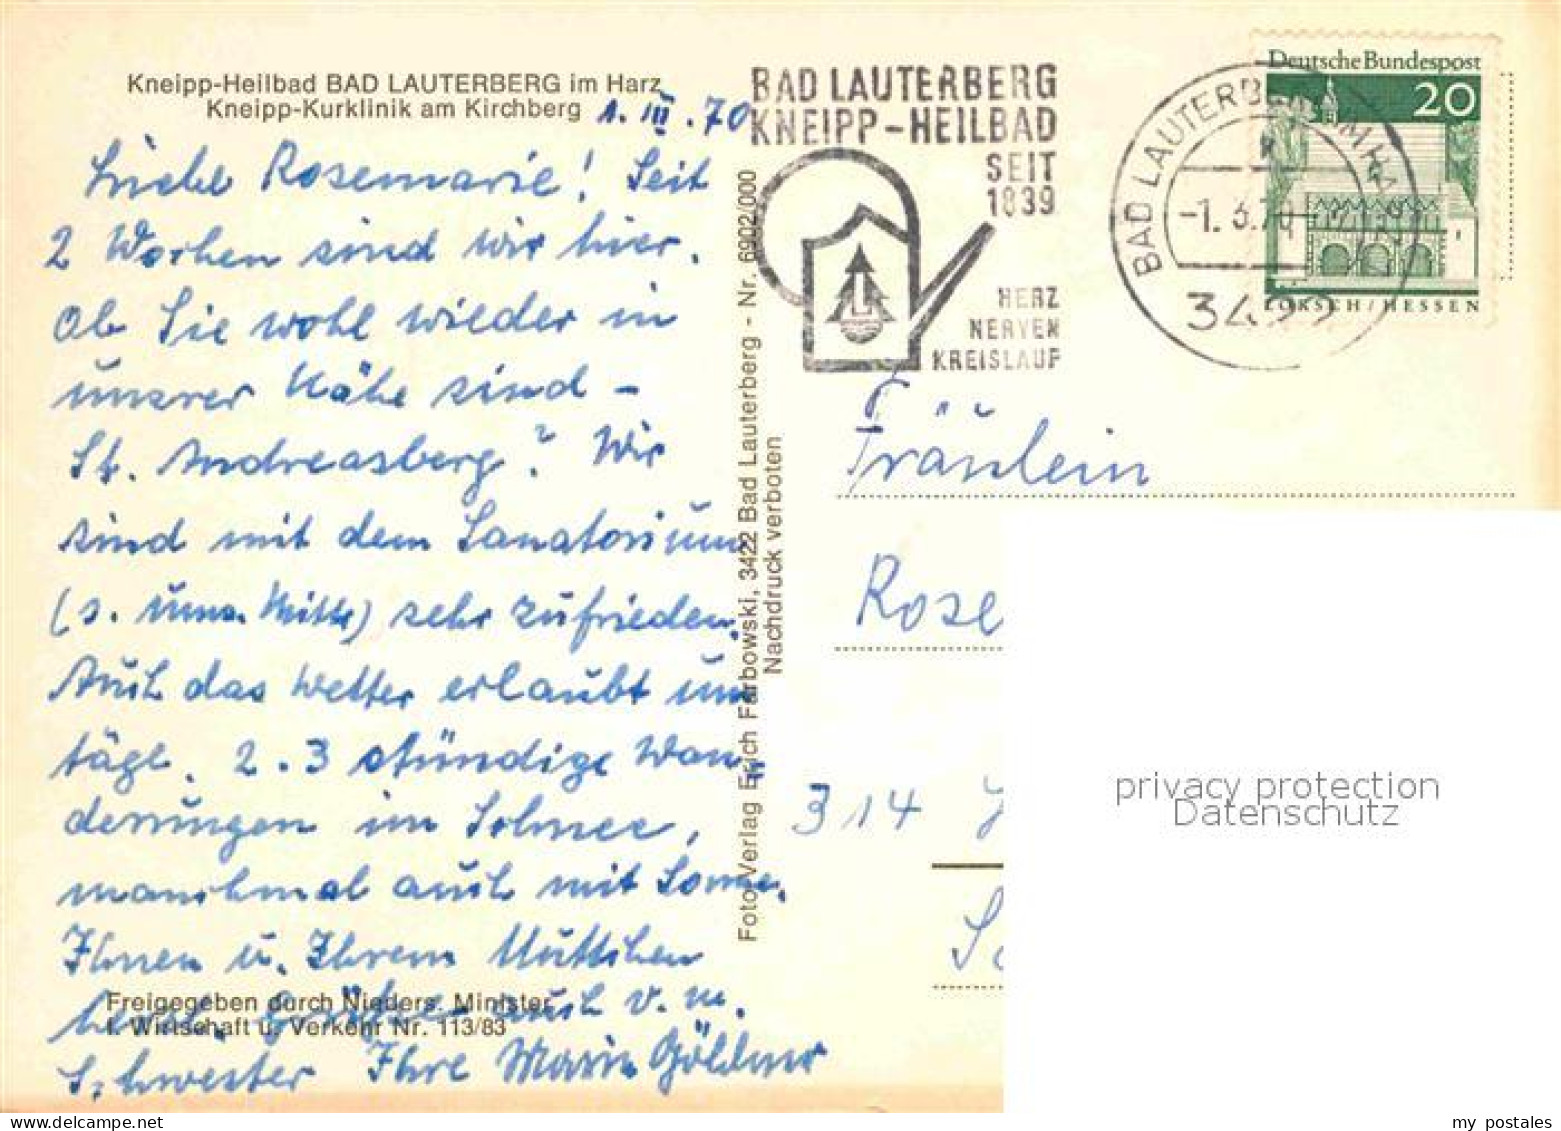 Kneipp-Heilbad BAD LAUTERBERG im Harz
Kneipp-Kurklinik am Kirchberg
1. III. 70
Liebe Rosemarie! Seit
2 Wochen sind wir hier.
Ob Sie wohl wieder in
unsrer Nähe sind -
St. Andreasberg? Wir
sind mit dem Sanatorium
(s. ums. Mitte) sehr zufrieden.
Auch das Wetter erlaubt uns
tägl. 2-3 stündige Wan-
derungen im Schnee,
manchmal auch mit Sonne.
Ihnen u. Ihrem Muttchen
herzl. Grüße auch v. m.
Schwester Ihre Maria Göldner
Freigegeben durch Nieders. Minister
f. Wirtschaft u. Verkehr Nr. 113/83
Foto-Verlag Erich Farbowski, 3422 Bad Lauterberg - Nr. 6902/000
Nachdruck verboten
BAD LAUTERBERG
KNEIPP-HEILBAD
SEIT
1839
HERZ
NERVEN
KREISLAUF
BAD LAUTERBERG IM HARZ
-1. 3. 70
Deutsche Bundespost
20
LORSCH/HESSEN
Fräulein
Rose
314
privacy protection
Datenschutz
my postales